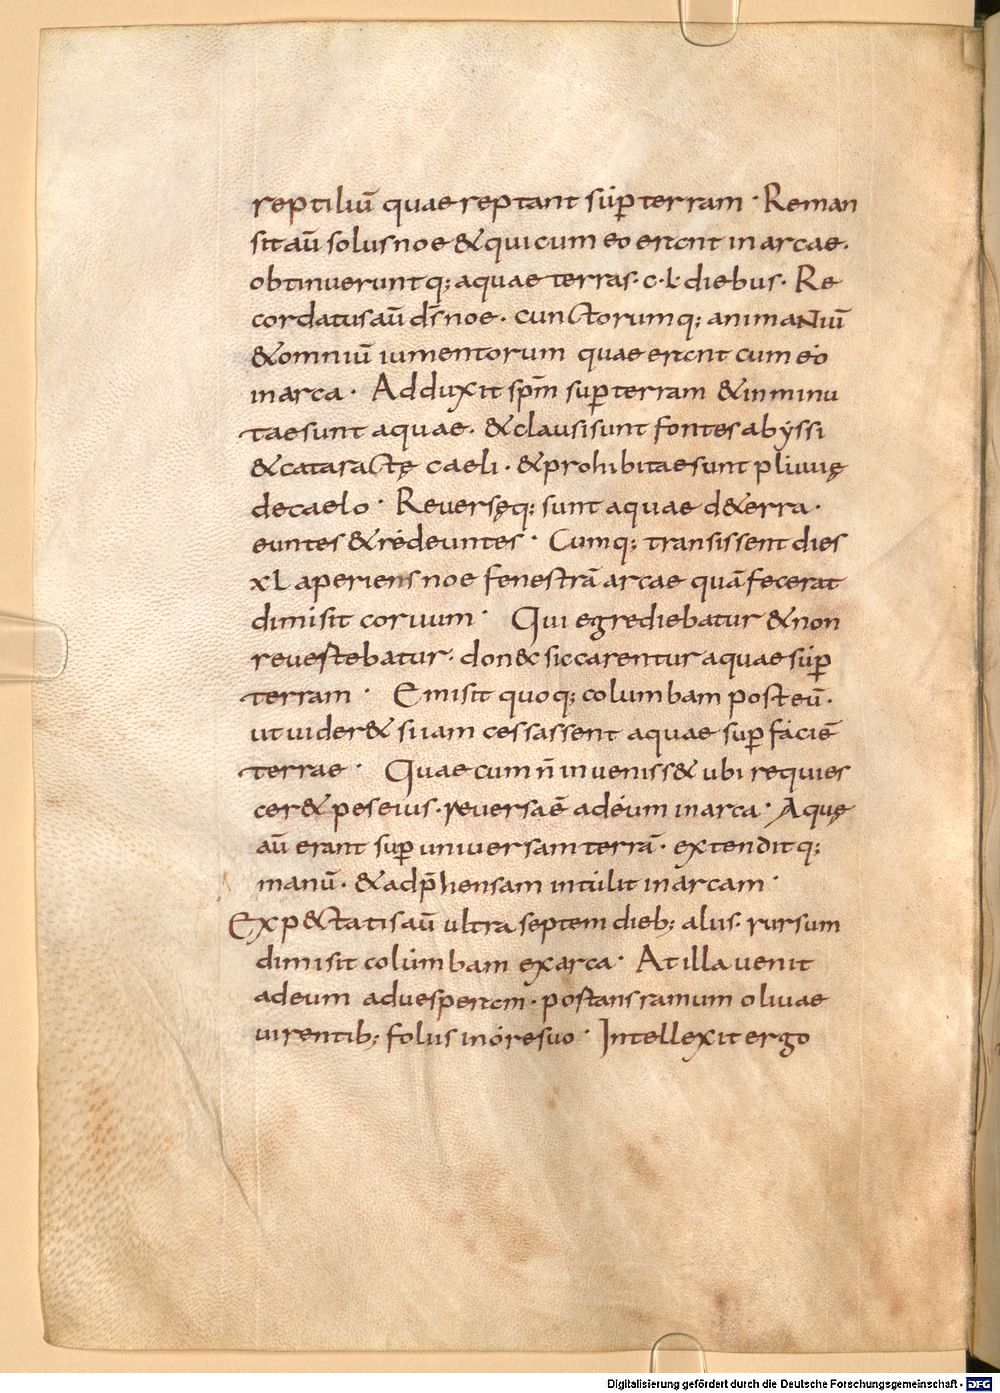 reptiliū quae reptant sup̄ terram · Reman
sit aū solus noe & qui cum eo erant in arcae·
obtinuerunt q; aquae terras· c·l· diebus· Re
cordatus aū d̄s noe· cunctorumq; animaNtiū
& omniū iumentorum quae erant cum eo
in arca · Adduxit sp̄m sup̄ terram & inminu
tae sunt aquae· & clausi sunt fontes abẏssi
& cataractę caeli · & prohibitae sunt pluuię
de caelo · Reuersęq; sunt aquae d& erra ·
euntes & redeuntes · Cumq; transissent dies
xL aperiens noe fenestrā arcae quā fecerat
dimisit coruum · Qui egrediebatur & non
reuertebatur· don&c siccarentur aquae sup̄
terram · Emisit quoq; columbam post eū·
ut uider& si iam cessassent aquae sup̄ faciē
terrae · Quae cum n̄ inueniss& ubi requies
cer& pes eius· reuersa ē ad eum in arca · Aquę
aū erant sup̄ uniuersam terrā· extenditq;
manū· & adp̄hensam intulit in arcam ·
Exp&ctatis aū ultra septem dieb; alus· rursum
dimisit columbam ex arca · At illa uenit
ad eum ad uesperam · postans ramum oliuae
uirentib; folus in ore suo · Intellexit ergo
Digitalisierung gefördert durch die Deutsche Forschungsgemeinschaft - DFG